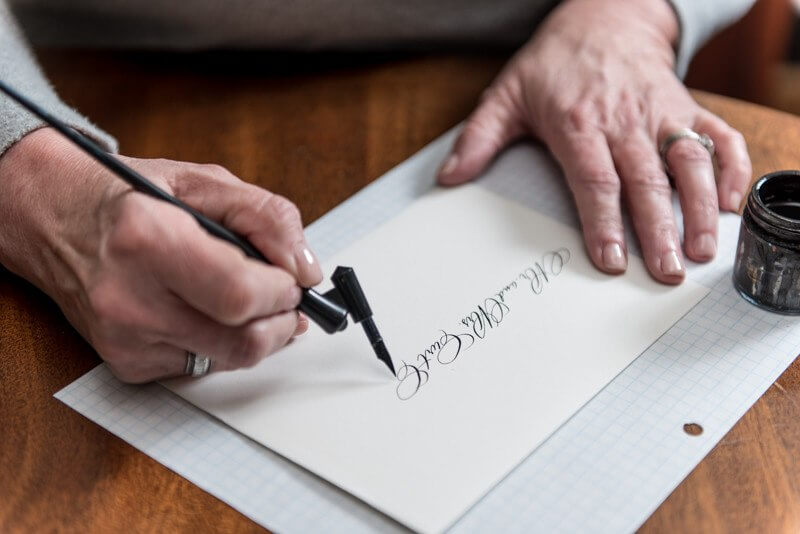 Mr. and Mrs. Curt C